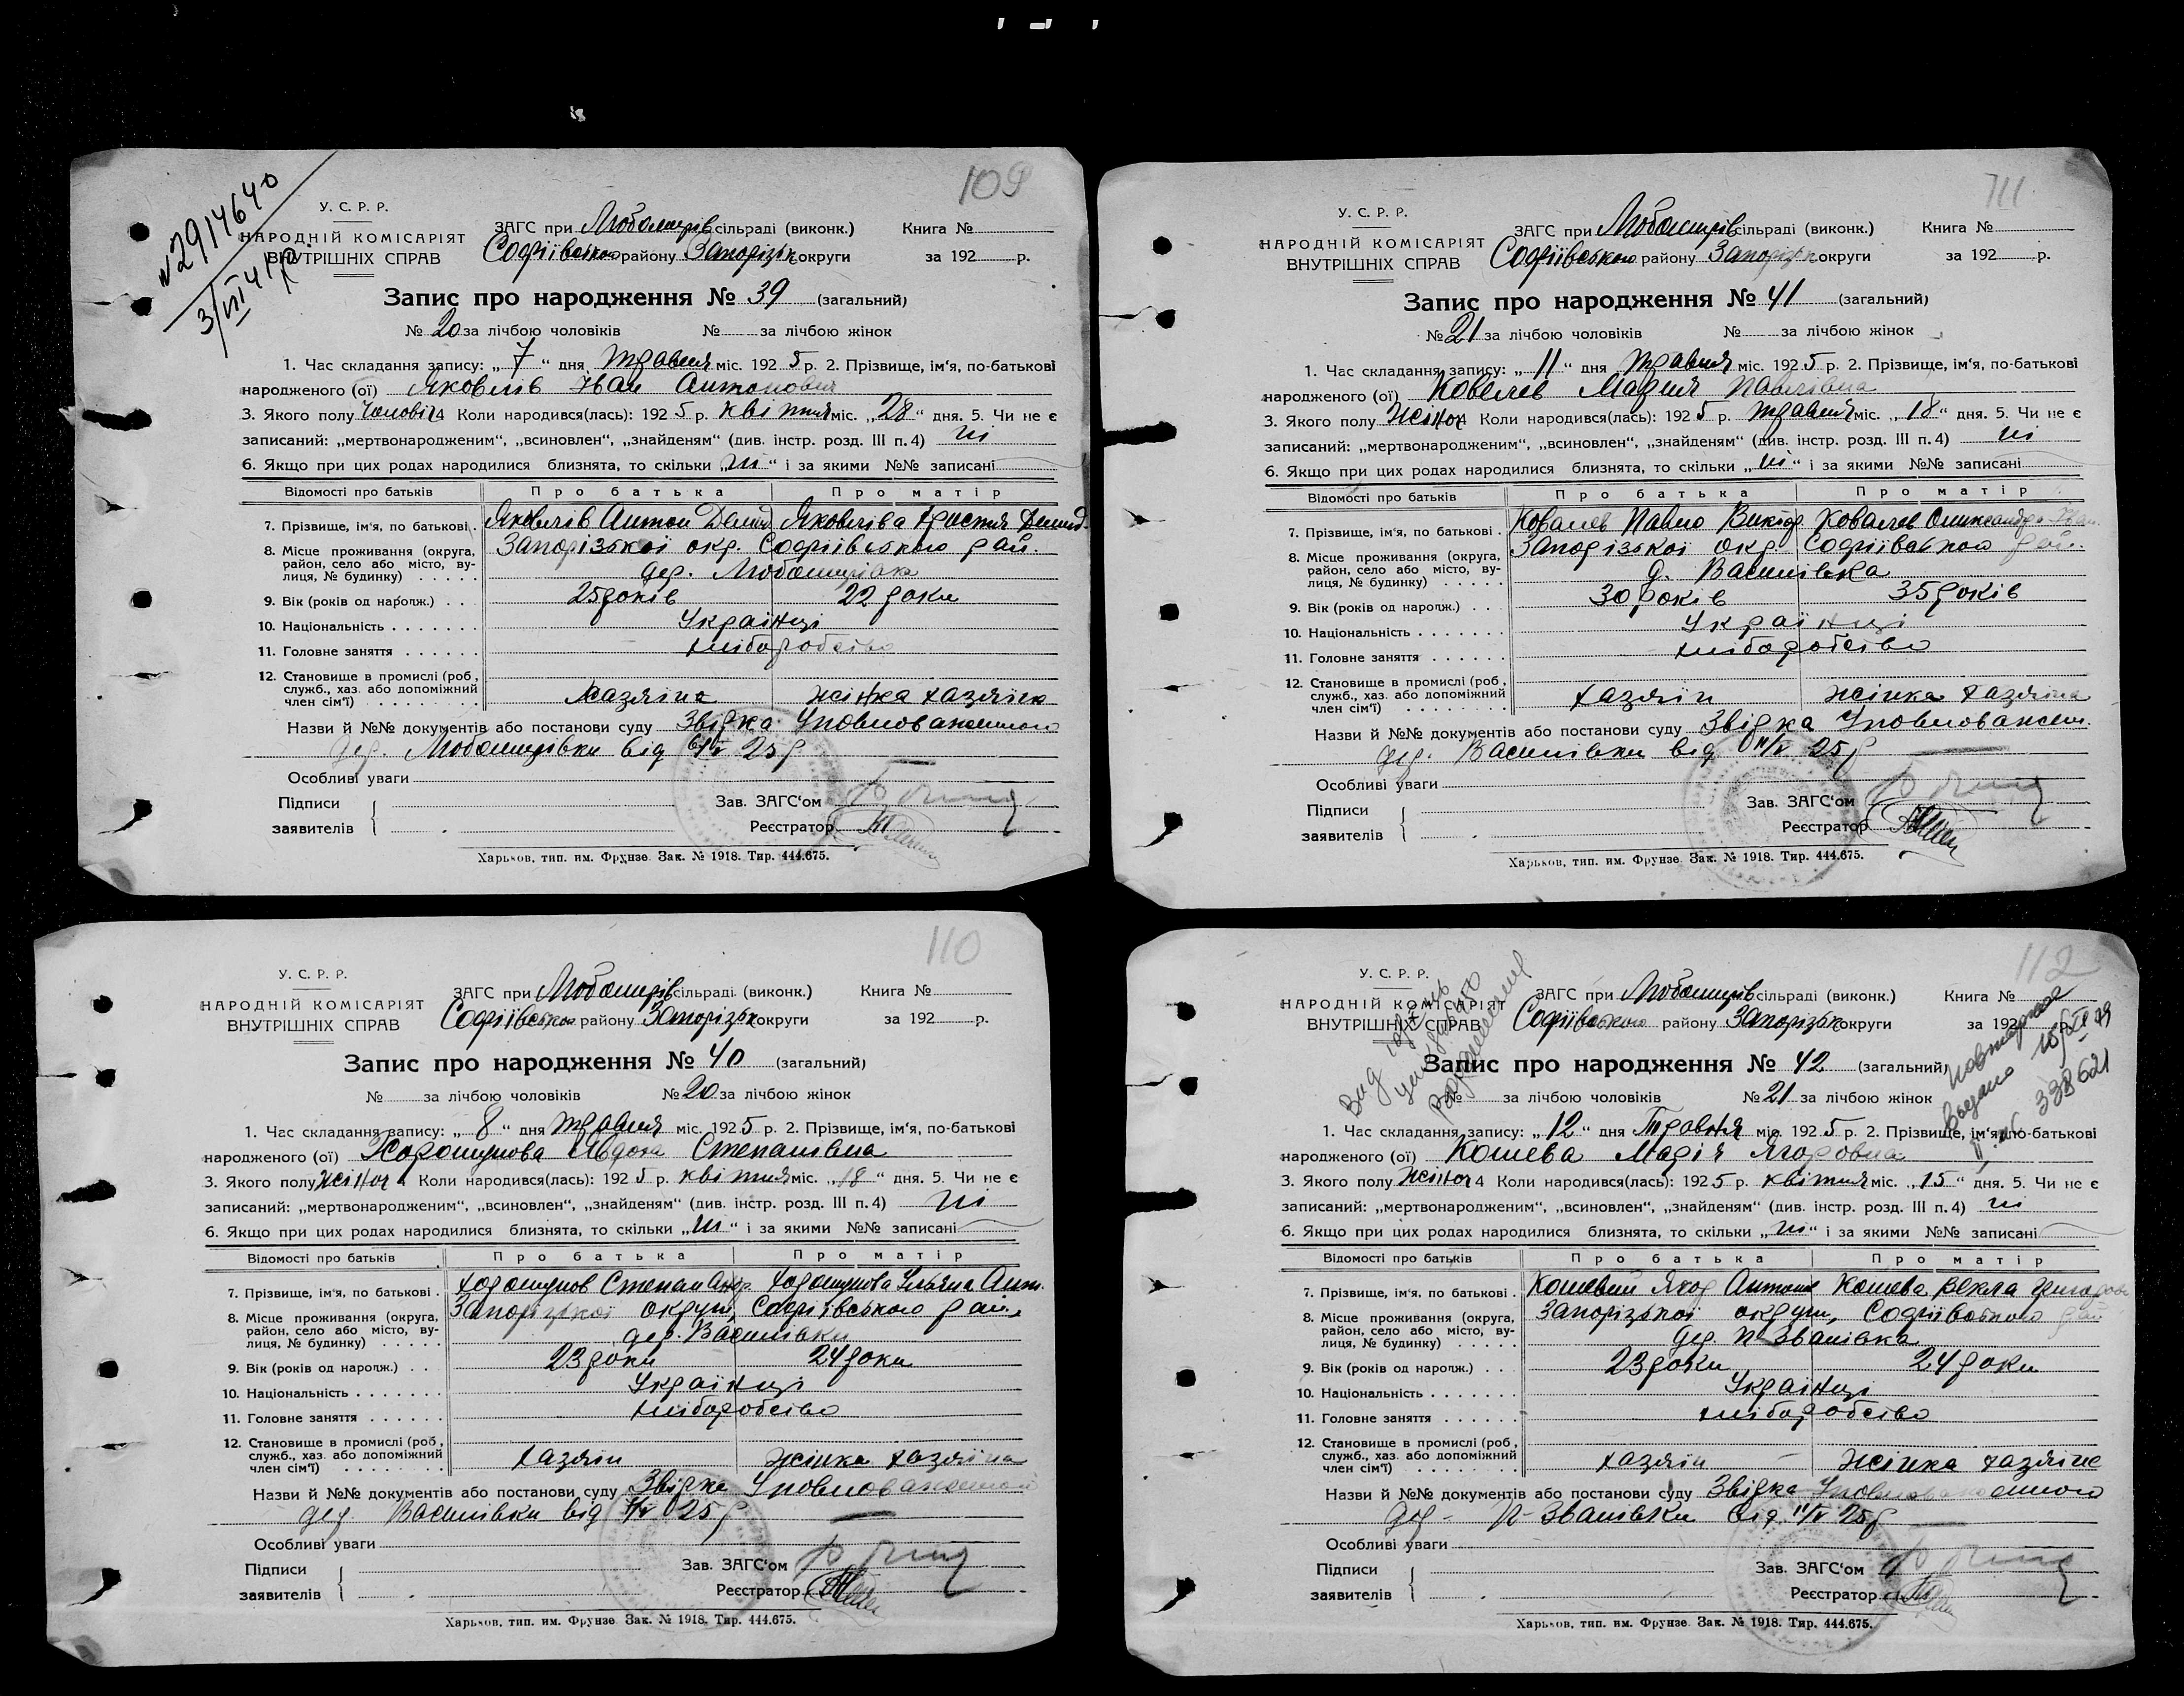 109
№2914640
3/VII 41 р.
У. С. Р. Р.
НАРОДНІЙ КОМІСАРІЯТ
ВНУТРІШНІХ СПРАВ
ЗАГС при Любомирів сільраді (виконк.) Книга №
Софіївського району Запорізьк округи за 192 р.
Запис про народження № 39 (загальний)
№ 20 за лічбою чоловіків № за лічбою жінок
1. Час складання запису: „ 7 “ дня травня міс. 192 5 р. 2. Прізвище, ім'я, по-батькові
народженого (ої) Яковлів Іван Антонович
3. Якого полу чоловіч 4 Коли народився(лась): 192 5 р. квітня міс. „ 28 “ дня. 5. Чи не є
записаний: „мертвонародженим“, „всиновлен“, „знайденям“ (див. інстр. розд. III п. 4) ні
6. Якщо при цих родах народилися близнята, то скільки „ ні “ і за якими №№ записані
Відомості про батьків Про батька Про матір
7. Прізвище, ім'я, по батькові. Яковлів Антон Демид Яковліва Христя Демид.
8. Місце проживання (округа, Запорізької окр. Софіївського рай.
район, село або місто, ву- дер. Любомирівка
лиця, № будинку)
9. Вік (років од нарощж.) 25 років 22 роки
10. Національність Українці
11. Головне заняття хліборобство
12. Становище в промислі (роб,
служб., хаз. або допоміжний
член сім'ї) хазяїна жінка хазяїна
Назви й №№ документів або постанови суду Звідка Уповноваженного
дер. Любомирівки від 25 р.
Особливі уваги
Підписи Зав. ЗАГС‘ом
заявителів Реєстратор
Харьков, тип. им. Фрунзе. Зак. № 1918. Тир. 444.675.
111
У. С. Р. Р.
НАРОДНІЙ КОМІСАРІЯТ
ВНУТРІШНІХ СПРАВ
ЗАГС при Любомирів сільраді (виконк.) Книга №
Софіївського району Запорізьк округи за 192 р.
Запис про народження № 41 (загальний)
№ 21 за лічбою чоловіків № за лічбою жінок
1. Час складання запису: „ 11 “ дня травня міс. 192 5 р. 2. Прізвище, ім'я, по-батькові
народженого (ої) Ковалев Мария Павлівна
3. Якого полу жіноч Коли народився(лась): 192 5 р. травня міс. „ 18 “ дня. 5. Чи не є
записаний: „мертвонародженим“, „всиновлен“, „знайденям“ (див. інстр. розд. III п. 4) ні
6. Якщо при цих родах народилися близнята, то скільки „ ні “ і за якими №№ записані
Відомості про батьків Про батька Про матір
7. Прізвище, ім'я, по батькові. Ковалев Павло Виктор. Ковалев Олександра Іван.
8. Місце проживання (округа, Запорізької окр. Софіївського рай.
район, село або місто, ву- д. Василівка
лиця, № будинку)
9. Вік (років од нарощж.) 30 років 35 років
10. Національність Українці
11. Головне заняття хліборобство
12. Становище в промислі (роб,
служб., хаз. або допоміжний
член сім'ї) хазяїн жінка хазяїна
Назви й №№ документів або постанови суду Звідка Уповноважен.
дер. Василівки від 25 р
Особливі уваги
Підписи Зав. ЗАГС‘ом
заявителів Реєстратор
Харьков, тип. им. Фрунзе. Зак. № 1918. Тир. 444.675.
110
У. С. Р. Р.
НАРОДНІЙ КОМІСАРІЯТ
ВНУТРІШНІХ СПРАВ
ЗАГС при Любомирів сільраді (виконк.) Книга №
Софіївського району Запорізьк округи за 192 р.
Запис про народження № 40 (загальний)
№ за лічбою чоловіків № 20 за лічбою жінок
1. Час складання запису: „ 8 “ дня травня міс. 192 5 р. 2. Прізвище, ім'я, по-батькові
народженого (ої) Хорошунова Явдоха Степанівна
3. Якого полу жіноч Коли народився(лась): 192 5 р. квітня міс. „ 18 “ дня. 5. Чи не є
записаний: „мертвонародженим“, „всиновлен“, „знайденям“ (див. інстр. розд. III п. 4) ні
6. Якщо при цих родах народилися близнята, то скільки „ ні “ і за якими №№ записані
Відомості про батьків Про батька Про матір
7. Прізвище, ім'я, по батькові. Хорошунов Степан Андр. Хорошунова Ульяна Ант.
8. Місце проживання (округа, Запорізької округи, Софіївського рай.
район, село або місто, ву- дер. Василівки
лиця, № будинку)
9. Вік (років од нарощж.) 23 роки 24 роки
10. Національність Українці
11. Головне заняття хліборобство
12. Становище в промислі (роб,
служб., хаз. або допоміжний
член сім'ї) хазяїн жінка хазяїна
Назви й №№ документів або постанови суду Звідка Уповноваженного
дер. Василівки від 25 р
Особливі уваги
Підписи Зав. ЗАГС‘ом
заявителів Реєстратор
Харьков, тип. им. Фрунзе. Зак. № 1918. Тир. 444.675.
112
повторное
Выдано 10/XI 49
№ 338621
У. С. Р. Р.
НАРОДНІЙ КОМІСАРІЯТ
ВНУТРІШНІХ СПРАВ
ЗАГС при Любомирів сільраді (виконк.) Книга №
Софіївського району Запорізьк округи за 192 р.
Запис про народження № 42 (загальний)
№ за лічбою чоловіків № 21 за лічбою жінок
1. Час складання запису: „ 12 “ дня Травня міс. 192 5 р. 2. Прізвище, ім'я, по-батькові
народженого (ої) Кошева Марія Ягоровна
3. Якого полу жіноч 4 Коли народився(лась): 192 5 р. квітня міс. „ 15 “ дня. 5. Чи не є
записаний: „мертвонародженим“, „всиновлен“, „знайденям“ (див. інстр. розд. III п. 4) ні
6. Якщо при цих родах народилися близнята, то скільки „ ні “ і за якими №№ записані
Відомості про батьків Про батька Про матір
7. Прізвище, ім'я, по батькові. Кошевий Ягор Антонов Кошева Векла Григоров
8. Місце проживання (округа, Запорізької округи, Софіївського рай
район, село або місто, ву- дер. П-Званівка
лиця, № будинку)
9. Вік (років од нарощж.) 23 роки 24 роки
10. Національність Українці
11. Головне заняття хліборобство
12. Становище в промислі (роб,
служб., хаз. або допоміжний
член сім'ї) хазяїн жінка хазяїна
Назви й №№ документів або постанови суду Звідка Уповноваженного
дер- П-Званівки від 11/V 25 р
Особливі уваги
Підписи Зав. ЗАГС‘ом
заявителів Реєстратор
Харьков, тип. им. Фрунзе. Зак. № 1918. Тир. 444.675.